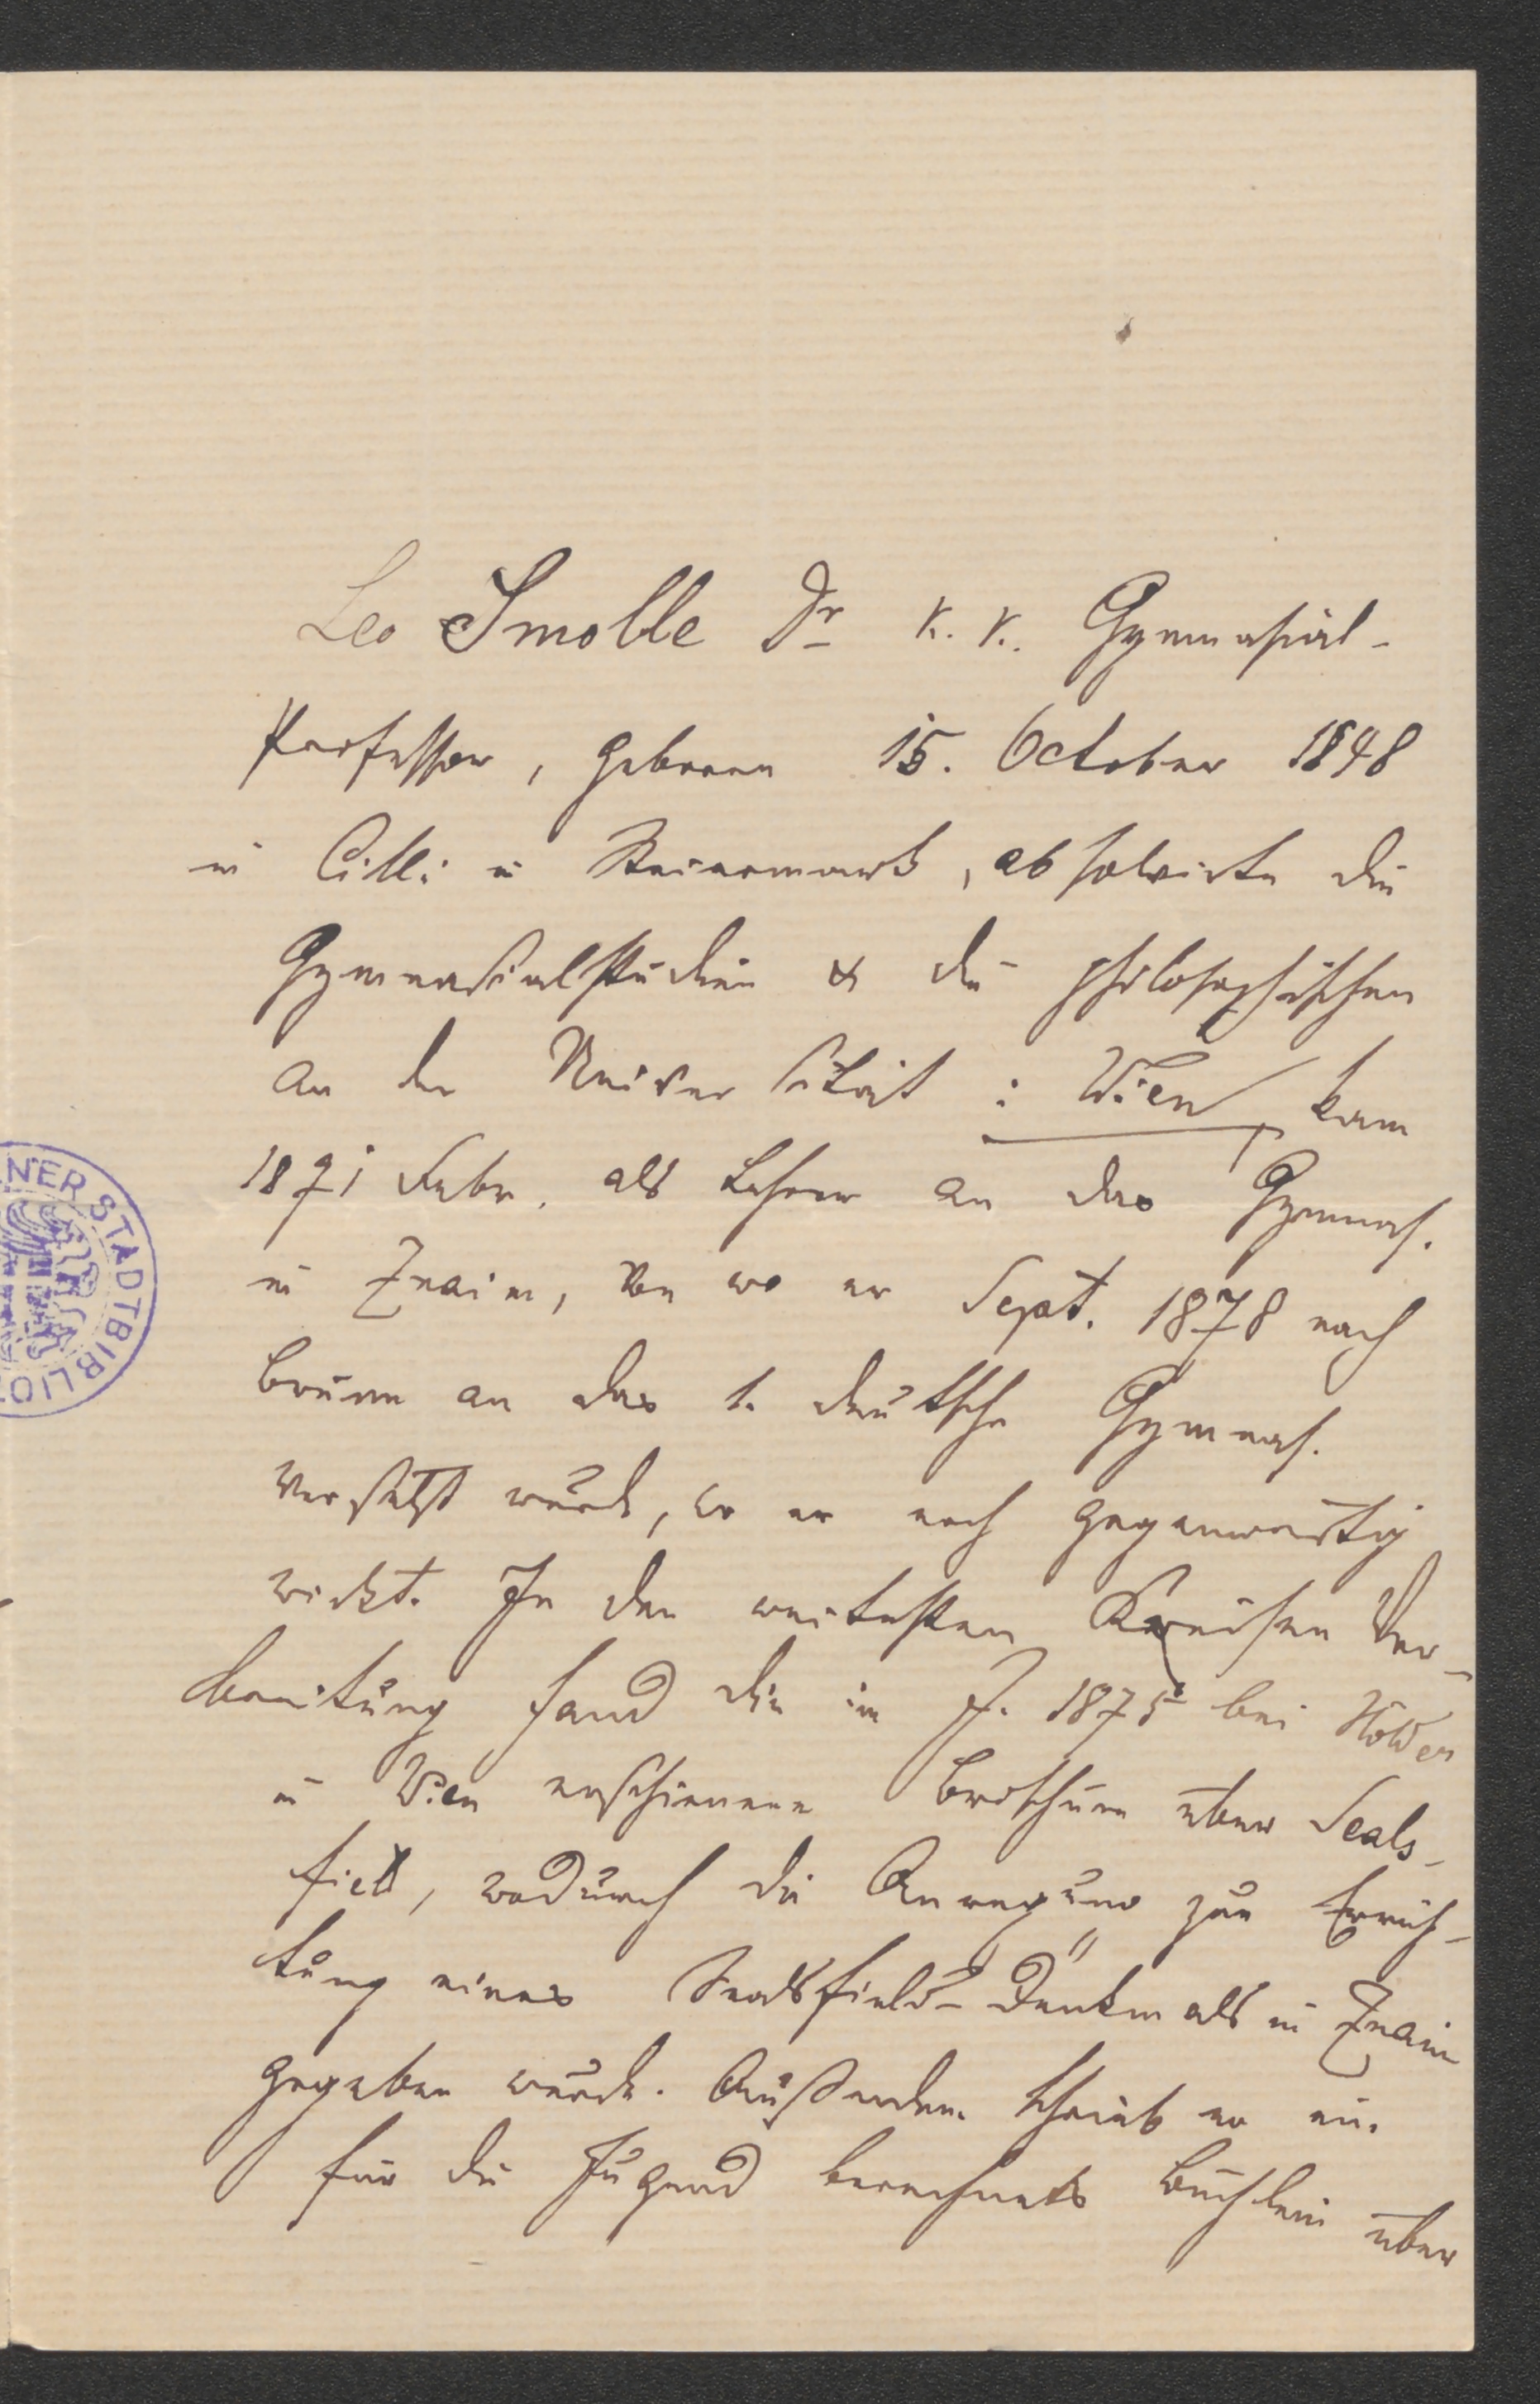 Leo Smolle Dr k. k. Gymnasial-
Professor, geboren 15. October 1848
in Cilli in Steiermark, absolvirte die
Gymnasialstudien & die philosophischen
an der Universität i. Wien, kam
1871 Febr. als Lehrer an das Gymnas.
in Znaim, von wo er Sept. 1878 nach
Brünn an das 1. deutsche Gymnas.
versetzt wurde, wo er noch gegenwärtig
wirkt. In den weitesten Kreisen Ver-
breitung fand die im J. 1875 bei Hölder
in Wien erschienene Broschüre über Seals-
field, wodurch die Anregung zur Errich-
tung eines Sealsfield-Denkmals in Znaim
gegeben wurde. Außerdem schrieb er ein
für die Jugend berechnetes Büchlein über
NER STADTBIBLIO